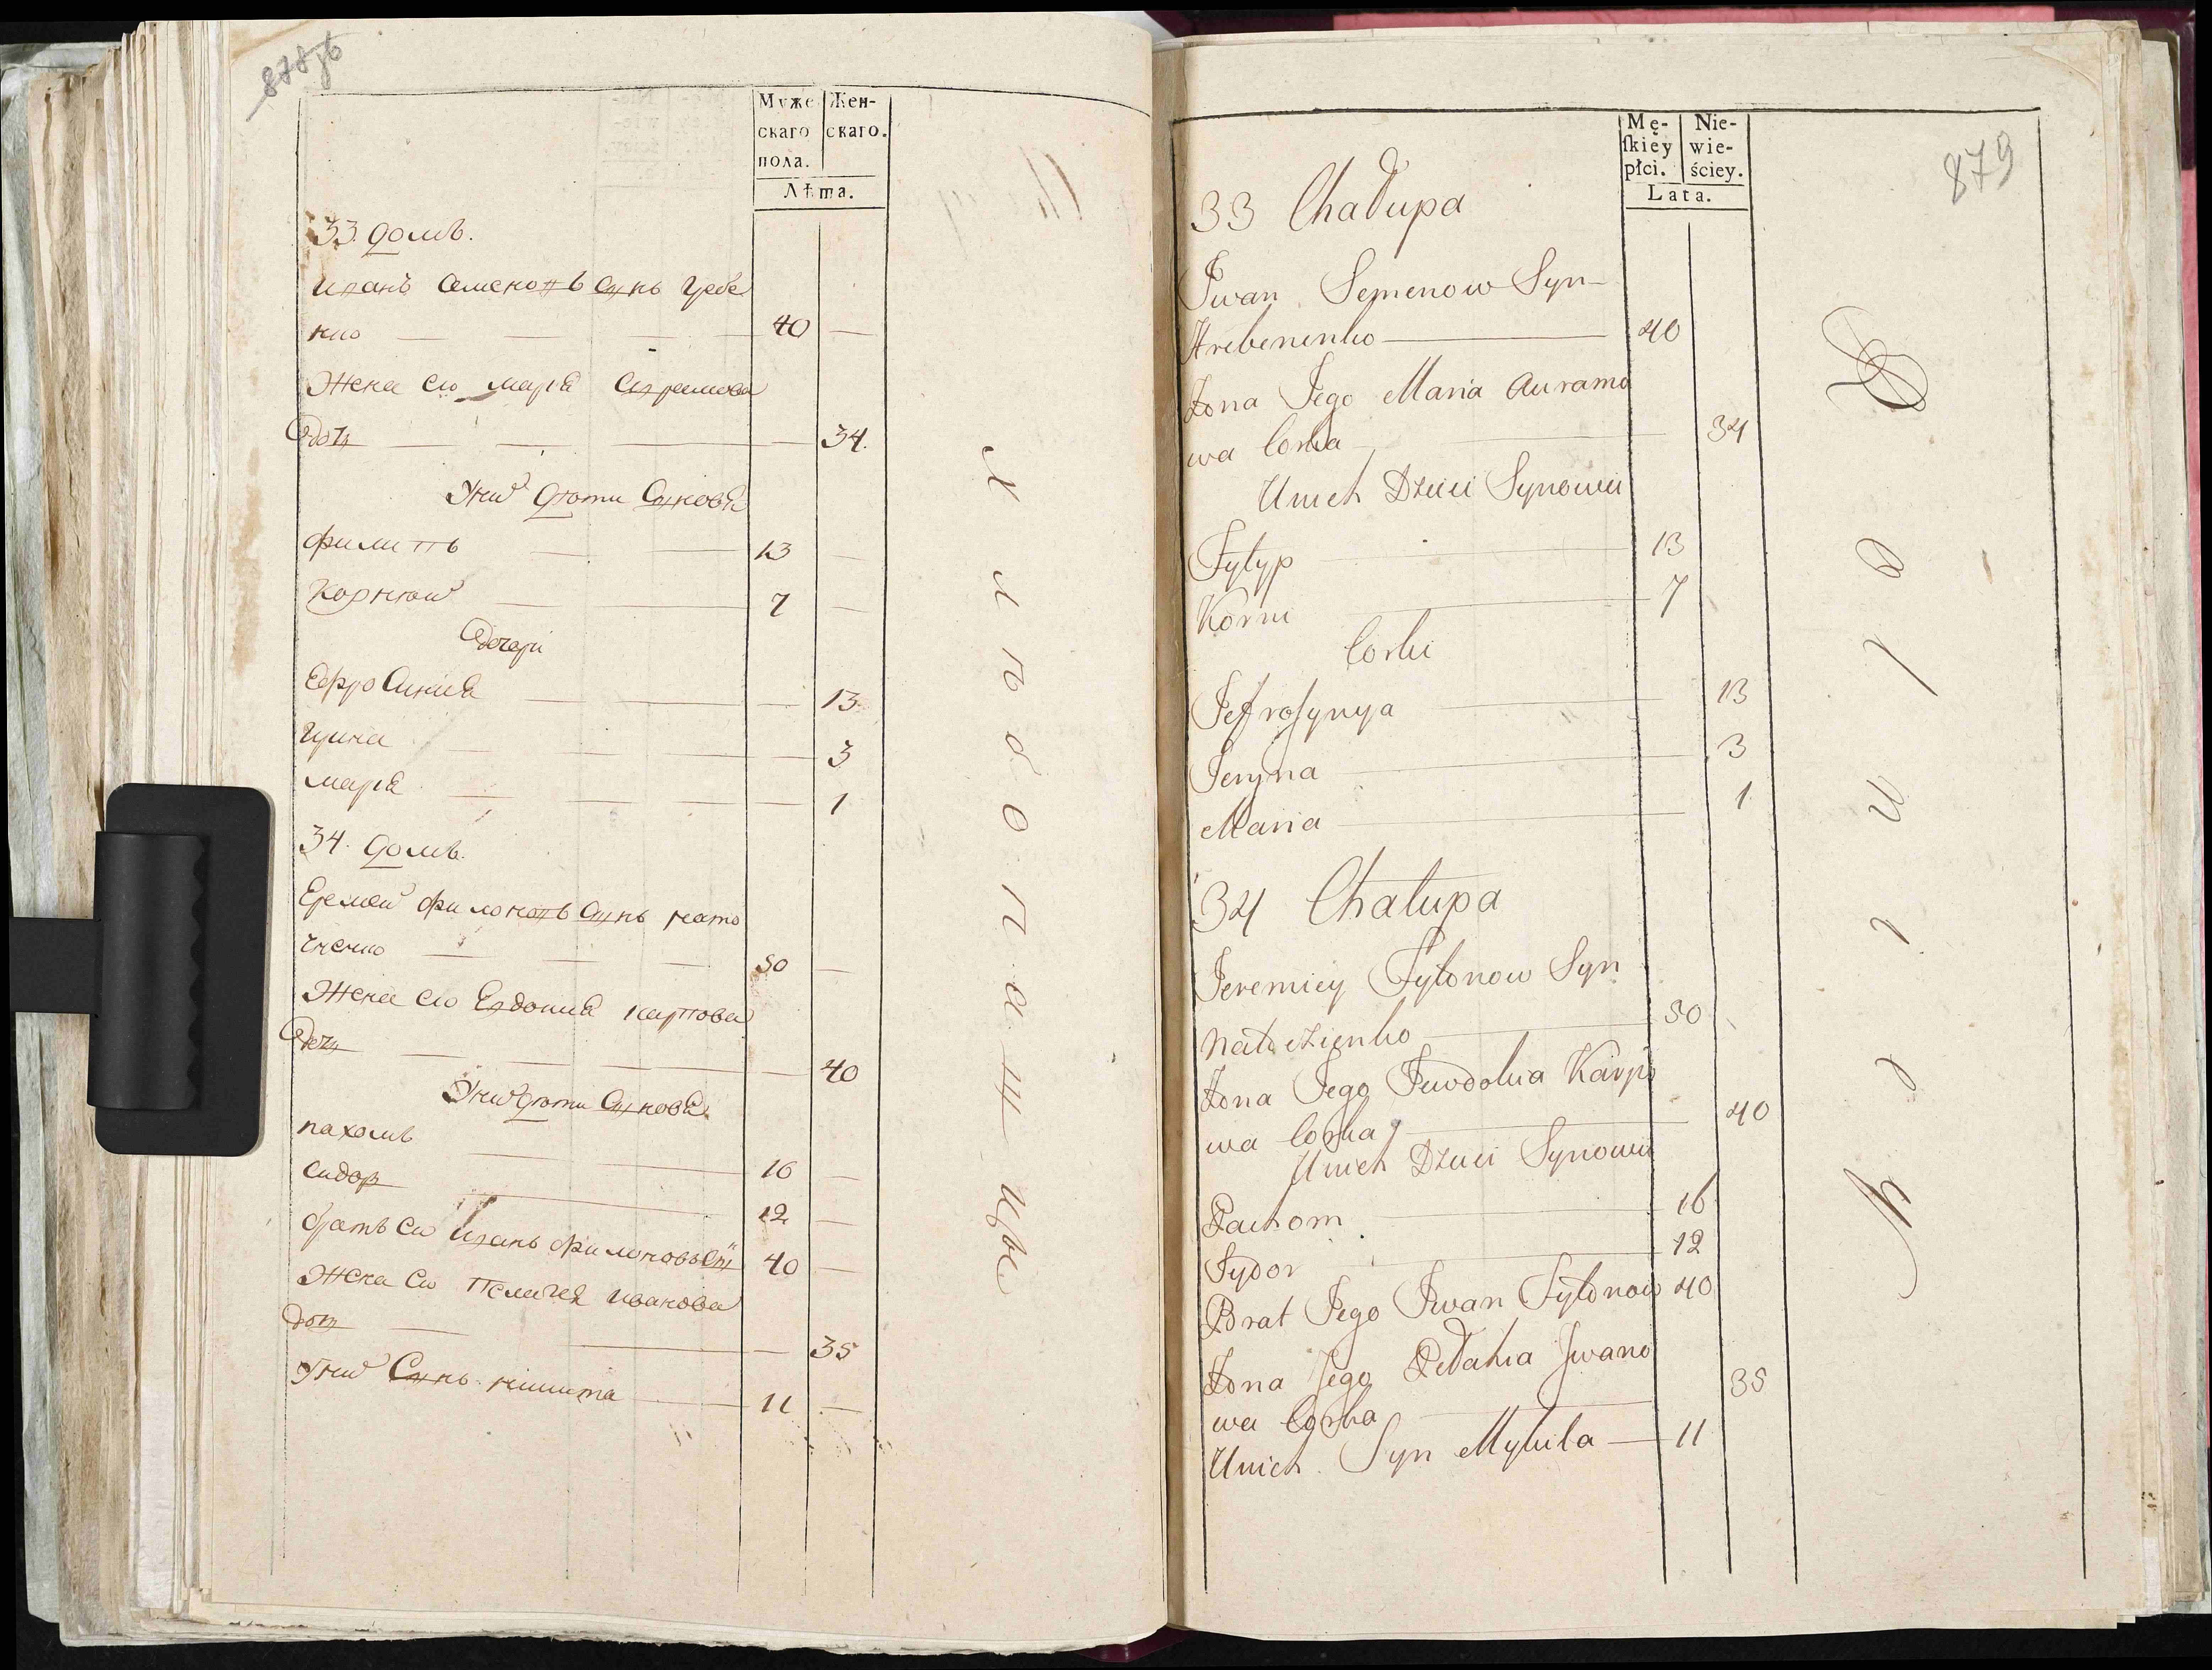 Муже
скаго
пола.
Жен-
скаго.
Лѣта.
33. домъ.
Иванъ Семеновъ Сынъ Гребе
нко 40
Жена его Маріѧ Аврамова
Дочь 34.
У них дѣти Сыновѧ
Филиппъ 13
Корней 7
Дочери
Ефросиниѧ 13
Ирина 3
Маріѧ 1
34. домъ.
Еремей Филоновъ Сынъ нато
50
Жена его Евдокиѧ Карпова
Дочь 40
У них дѣти Сыновѧ
Пахомъ 16
Сидоръ 12
братъ его Иванъ Филоновъ Сын 40
Жена его Пелагея Иванова
дочь 35
У них Сынъ никита 11
хлѣбопашцы
879
Mę-
ſkiey
płci.
Nie-
wie-
ściey.
Lata.
33 Chałupa
Jwan Semenow Syn
Hrebenenko 40
Żona Jego Maria Auramo
wa Corka 34
Unich Dzieci Synowie
Fylyp 13
Korni 7
Corki
Jefroſynya 13
Jeryna 3
Maria 1
34 Chałupa
Jeremiey Fyłonow Syn
50
Żona Jego Jewdokia Karpo
wa Corka 40
Unich Dzieci Synowie
Pachom 16
Sydor 12
Brat Jego Jwan Fyłonow 40
Żona Jego Pełahia Jwano
wa Corka 35
Unich Syn Mykita 11